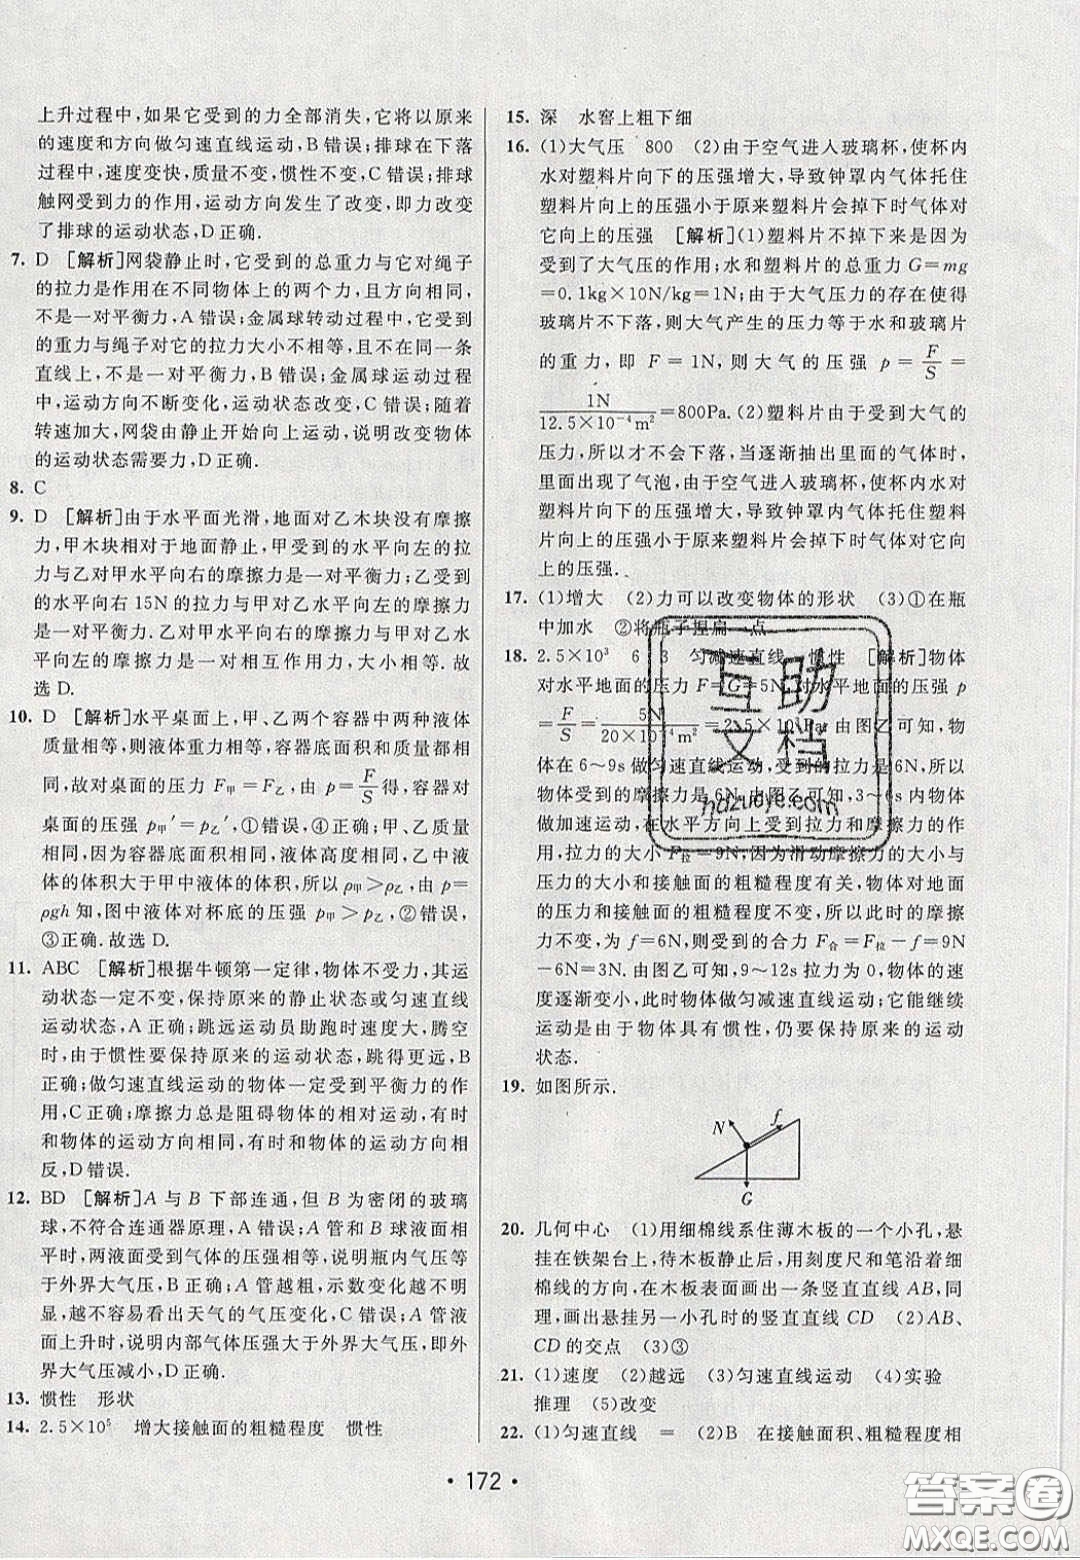 上升过程中,如果它受到的力全部消失,它将以原来
的速度和方向做匀速直线运动,B错误;排球在下落
过程中,速度变快,质量不变,惯性不变,C错误;排球
触网受到力的作用,运动方向发生了改变,即力改变
了排球的运动状态,D正确.
7. D [解析]网袋静止时,它受到的总重力与它对绳子
的拉力是作用在不同物体上的两个力,且方向相同,
不是一对平衡力,A错误;金属球转动过程中,它受到
的重力与绳子对它的拉力大小不相等,且不在同一条
直线上,不是一对平衡力,B错误;金属球运动过程
中,运动方向不断变化,运动状态改变,C错误;随着
转速加大,网袋由静止开始向上运动,说明改变物体
的运动状态需要力,D正确.
8. C
9. D [解析]由于水平面光滑,地面对乙木块没有摩擦
力,甲木块相对于地面静止,甲受到的水平向左的拉
力与乙对甲水平向右的摩擦力是一对平衡力;乙受到
的水平向右15N的拉力与甲对乙水平向左的摩擦力
是一对平衡力.乙对甲水平向右的摩擦力与甲对乙水
平向左的摩擦力是一对相互作用力,大小相等.故
选D.
10. D [解析]水平桌面上,甲、乙两个容器中两种液体
质量相等,则液体重力相等,容器底面积和质量都相
同,故对桌面的压力 F甲=F乙,由 p=F/S得,容器对
桌面的压强 p甲′=p乙′,①错误,④正确;甲、乙质量
相同,因为容器底面积相同,液体高度相同,乙中液体
体积大于甲中液体的体积,所以 ρ甲>ρ乙,由 p=
ρgh知,图中液体对杯底的压强 p甲>p乙,②错误,
③正确.故选D.
11. ABC [解析]根据牛顿第一定律,物体不受力,其运
动状态一定不变,保持原来的静止状态或匀速直线
运动状态,A正确;跳远运动员助跑时速度大,腾空
时,由于惯性要保持原来的运动状态,跳得更远,B
正确;做匀速直线运动的物体一定受到平衡力的作
用,C正确;摩擦力总是阻碍物体的相对运动,有时
和物体的运动方向相同,有时和物体的运动方向相
反,D错误.
12. BD [解析]A与B下部连通,但B为密闭的玻璃
球,不符合连通器原理,A错误;A管和B球液面相
平时,两液面受到气体的压强相等,说明瓶内气压等
于外界大气压,B正确;A管越粗,示数变化越不明
显,越不容易看出天气的气压变化,C错误;A管液
面上升时,说明内部气体压强大于外界大气压,即外
界大气压减小,D正确.
13. 惯性 形状
14. 2.5×10⁵ 增大接触面的粗糙程度 惯性
15. 深 水窖上粗下细
16. (1)大气压 800 (2)由于空气进入玻璃杯,使杯内
水对塑料片向下的压强增大,导致钟罩内气体托住
塑料片向上的压强小于原来塑料片会掉下时气体对
它向上的压强 [解析](1)塑料片不掉下来,因为
受到了大气压的作用;水和塑料片的总重力G=mg
=0.1kg×10N/kg=1N;由于大气压力的存在使得
玻璃片不下落,则大气产生的压力等于水和玻璃片
的重力,即 F=1N,则大气的压强 p=F/S=
1N/12.5×10⁻⁴m²=800Pa.(2)塑料片由于受到大气的
压力,所以才不会下落,当逐渐抽出里面的空气时,
里面出现了气泡,由于空气进入玻璃杯,使杯内水对
塑料片向下的压强增大,导致钟罩内气体托住塑料
片向上的压强小于原来塑料片会掉下时气体对它向
上的压强.
17. (1)增大 (2)力可以改变物体的形状 (3)①在瓶
中加水 ②将瓶子捏扁一点
18. 2.5×10³ 6 3 匀减速直线 惯性 [解析]物体
对水平地面的压力F=G=5N,对水平地面的压强 p
=F/S=5N/20×10⁻⁴m²=2.5×10³Pa.由图乙可知,物
体在6~9s做匀速直线运动,受到的拉力是6N,所以
物体受到的摩擦力是6N;由图乙可知,3~6s内物体
做加速运动,在水平方向上受到拉力和摩擦力的作
用,拉力的大小F拉=9N;因为滑动摩擦力的大小与
压力的大小和接触面的粗糙程度有关,物体对地面
的压力和接触面的粗糙程度不变,所以此时的摩擦
力不变,为 f=6N,则受到的合力 F合=F拉-f=9N
-6N=3N.由图乙可知,9~12s拉力不变,物体的速
度逐渐变小,此时物体做匀减速直线运动;它能继续
运动是由于物体具有惯性,仍要保持原来的运动
状态.
19. 如图所示.
N
f
G
20. 几何中心 (1)用细棉线系住薄木板的一个小孔,悬
挂在铁架台上,待木板静止后,用刻度尺和笔沿着细
棉线的方向,在木板表面画出一条竖直直线AB,同
理,画出悬挂另一小孔时的竖直直线CD (2)AB、
CD的交点 (3)③
21. (1)速度 (2)越远 (3)匀速直线运动 (4)实验
推理 (5)改变
22. (1)匀速直线 = (2)B 在接触面积、粗糙程度相
互助
文档
hdzuoye.com
• 172 •
答案圈
MXQE.COM